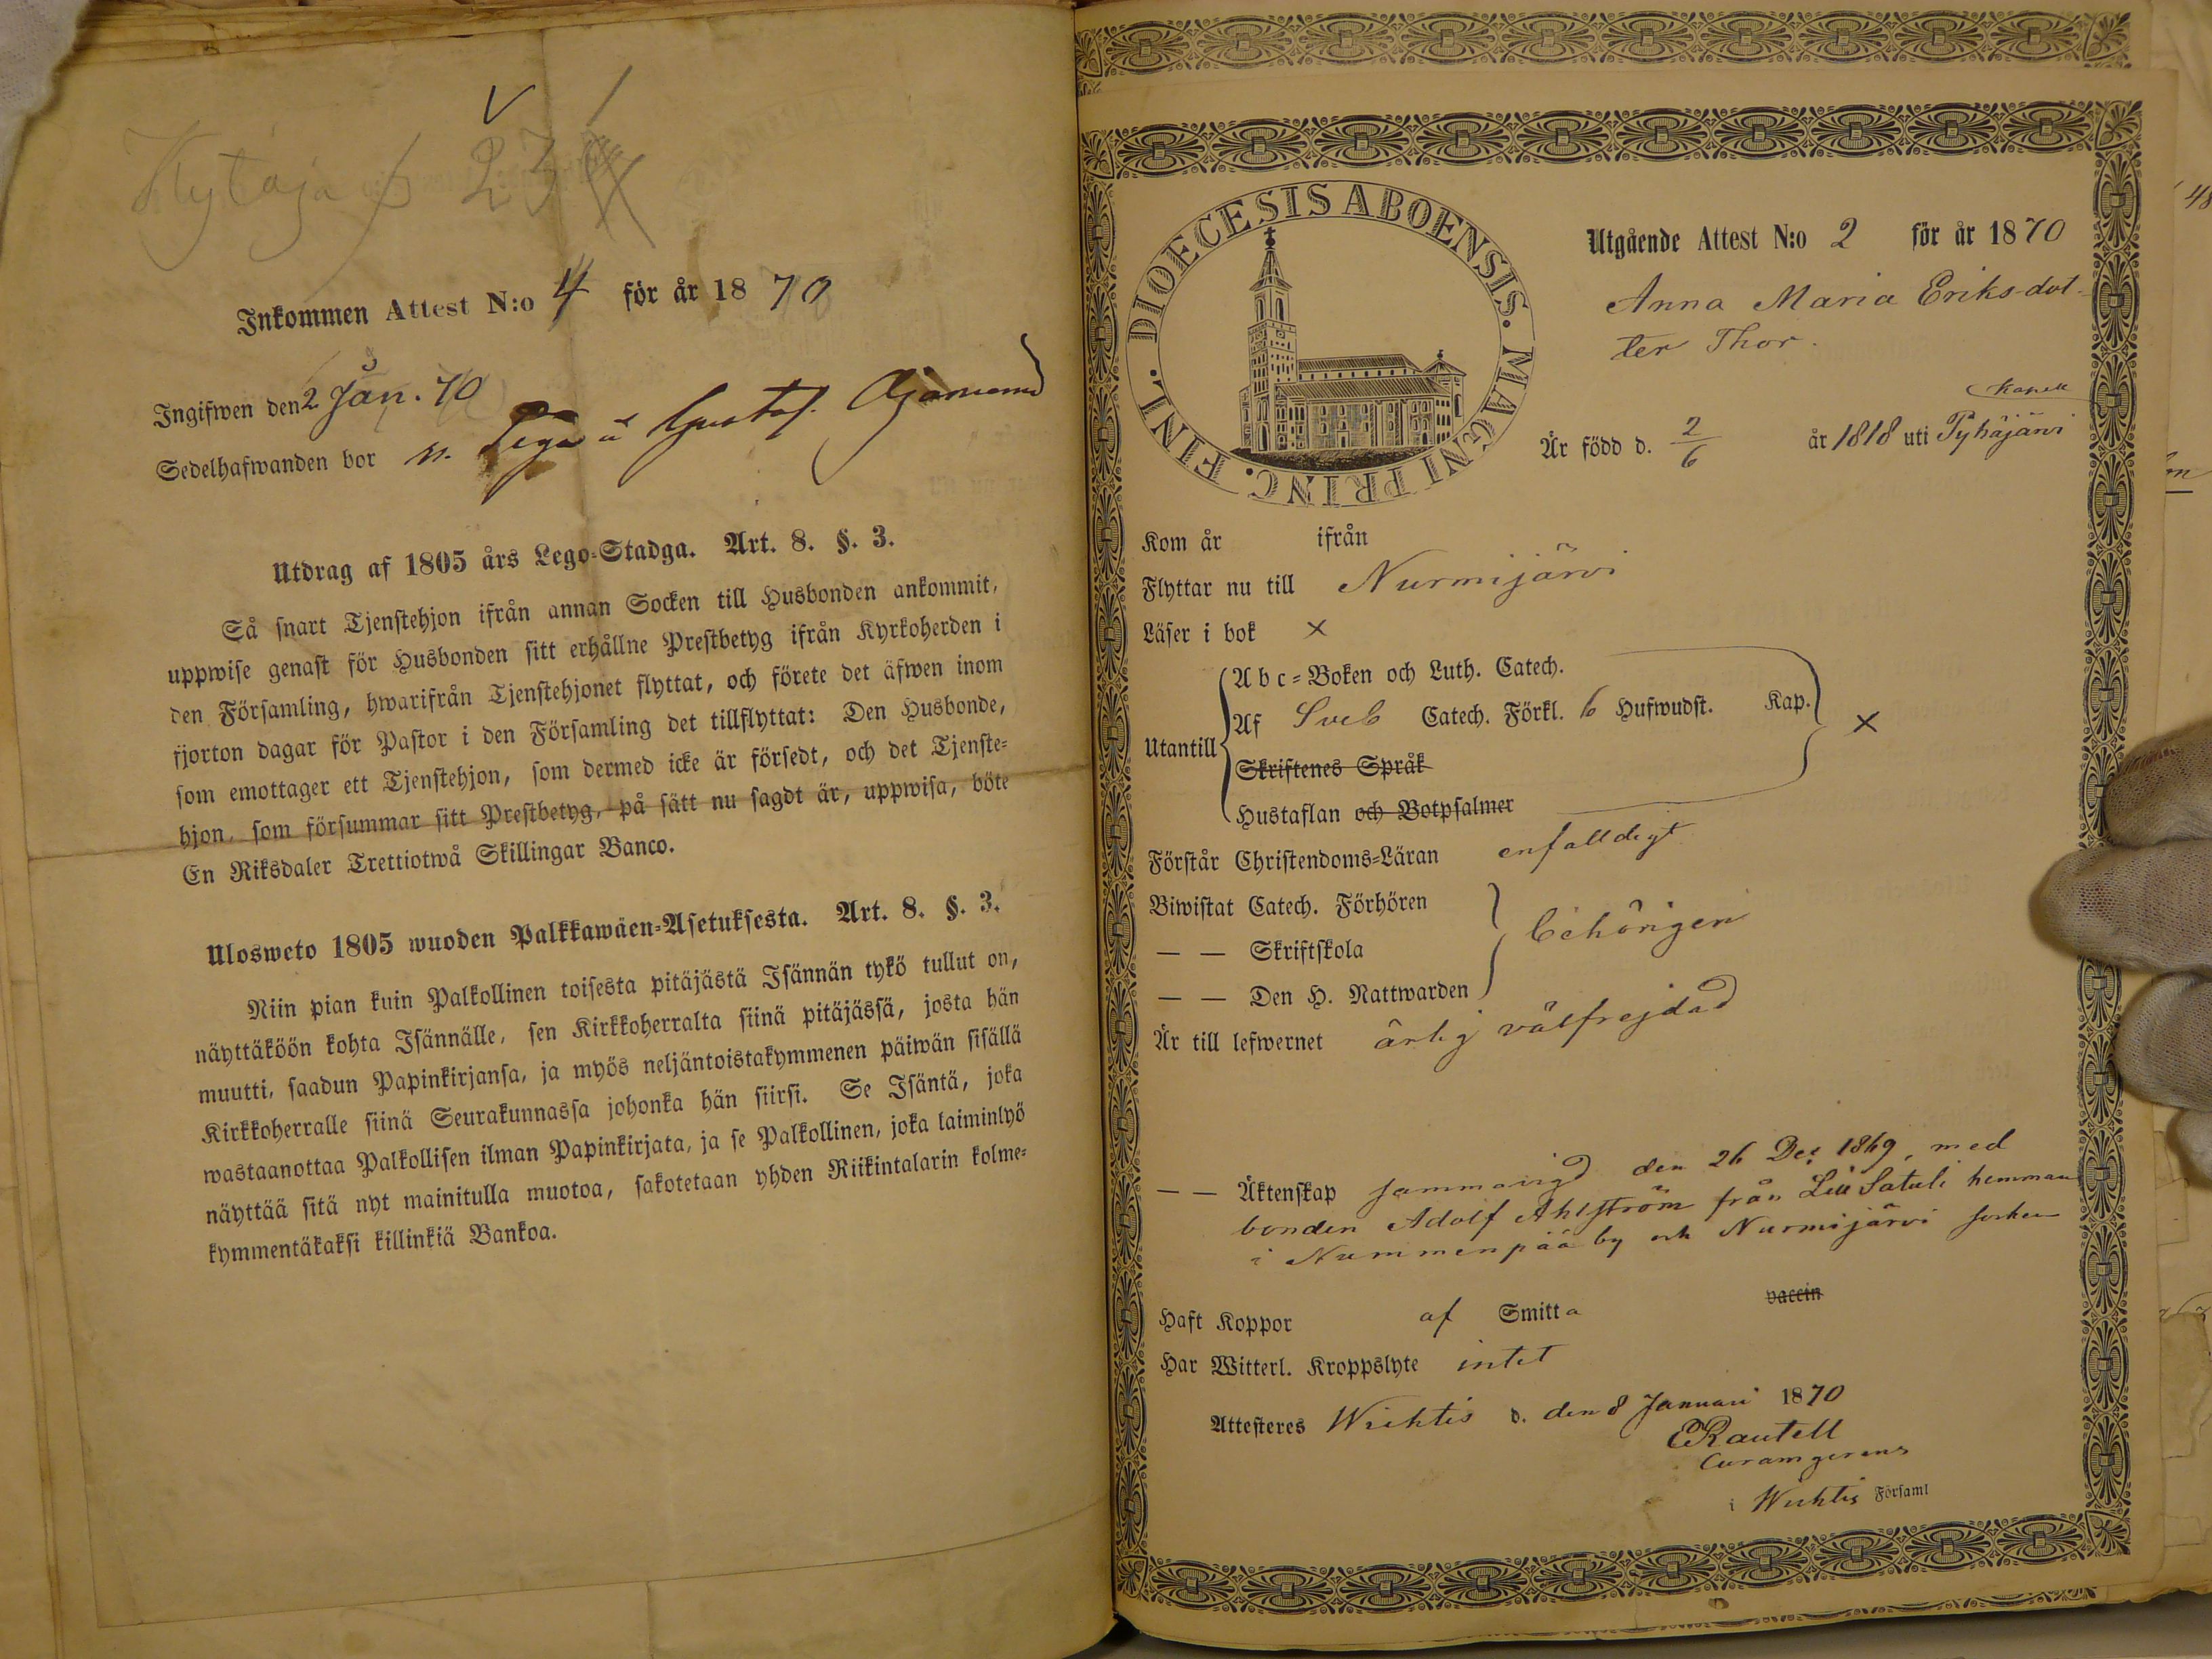 Kytäjä p 23
Inkommen Attest N:o 4 för år 18 70
Ingifwen den 2 Jan. 70
Sedelhafwanden bor Gustaf
Utdrag af 1805 års Lego-Stadga. Art. 8. §. 3.
Så snart Tjenstehjon ifrån annan Socken till Husbonden ankommit,
uppwise genast för Husbonden sitt erhållne Prestbetyg ifrån Kyrkoherden i
den Församling, hwarifrån Tjenstehjonet flyttat, och förete det äfwen inom
fjorton dagar för Pastor i den Församling det tillflyttat: Den Husbonde,
som emottager ett Tjenstehjon, som dermed icke är försedt, och det Tjenste-
hjon, som försummar sitt Prestbetyg, på sätt nu sagdt är, uppwisa, böte
En Riksdaler Trettiotwå Skillingar Banco.
Ulosweto 1805 wuoden Palkkawäen-Asetuksesta. Art. 8. §. 3.
Niin pian kuin Palkollinen toisesta pitäjästä Isännän tykö tullut on,
näyttäköön kohta Isännälle, sen Kirkkoherralta siinä pitäjässä, josta hän
muutti, saadun Papinkirjansa, ja myös neljäntoistakymmenen päiwän sisällä
Kirkkoherralle siinä Seurakunnassa johonka hän siirsi. Se Isäntä, joka
wastaanottaa Palkollisen ilman Papinkirjata, ja se Palkollinen, joka laiminlyö
näyttää sitä nyt mainitulla muotoa, sakotetaan yhden Riikintalarin kolme-
kymmentäkaksi killinkiä Bankoa.
DIOECESIS ABOENSIS. MAGNI PRINC. FINL.
Utgående Attest N:o 2 för år 1870
Anna Maria Eriksdot-
ter Thor.
Kapell
Är född d. 2/6 år 1818 uti Pyhäjärvi
Kom år ifrån
Flyttar nu till Nurmijärvi
Läser i bok ×
Utantill
Abc-Boken och Luth. Catech.
Af Sveb Catech. Förkl. 6 Hufwudst. Kap. ×
Skriftenes Språk
Hustaflan och Botpsalmer
Förstår Christendoms-Läran enfalldigt
Biwistat Catech. Förhören
— — Skriftskola behörigen
— — Den H. Nattwarden
Är till lefwernet ärlig välfrejdad
— — Äktenskap sammanvigd den 26 Dec 1869, med
bonden Adolf Ahlström från Satuli hemman
i Nummenpää by och Nurmijärvi socken
Haft Koppor af Smitta vaccin
Har Witterl. Kroppslyte intet
Attesteres Wichtis d. den 8 Januari 1870
E Rautell
Curam gerens
i Wichtis Församl